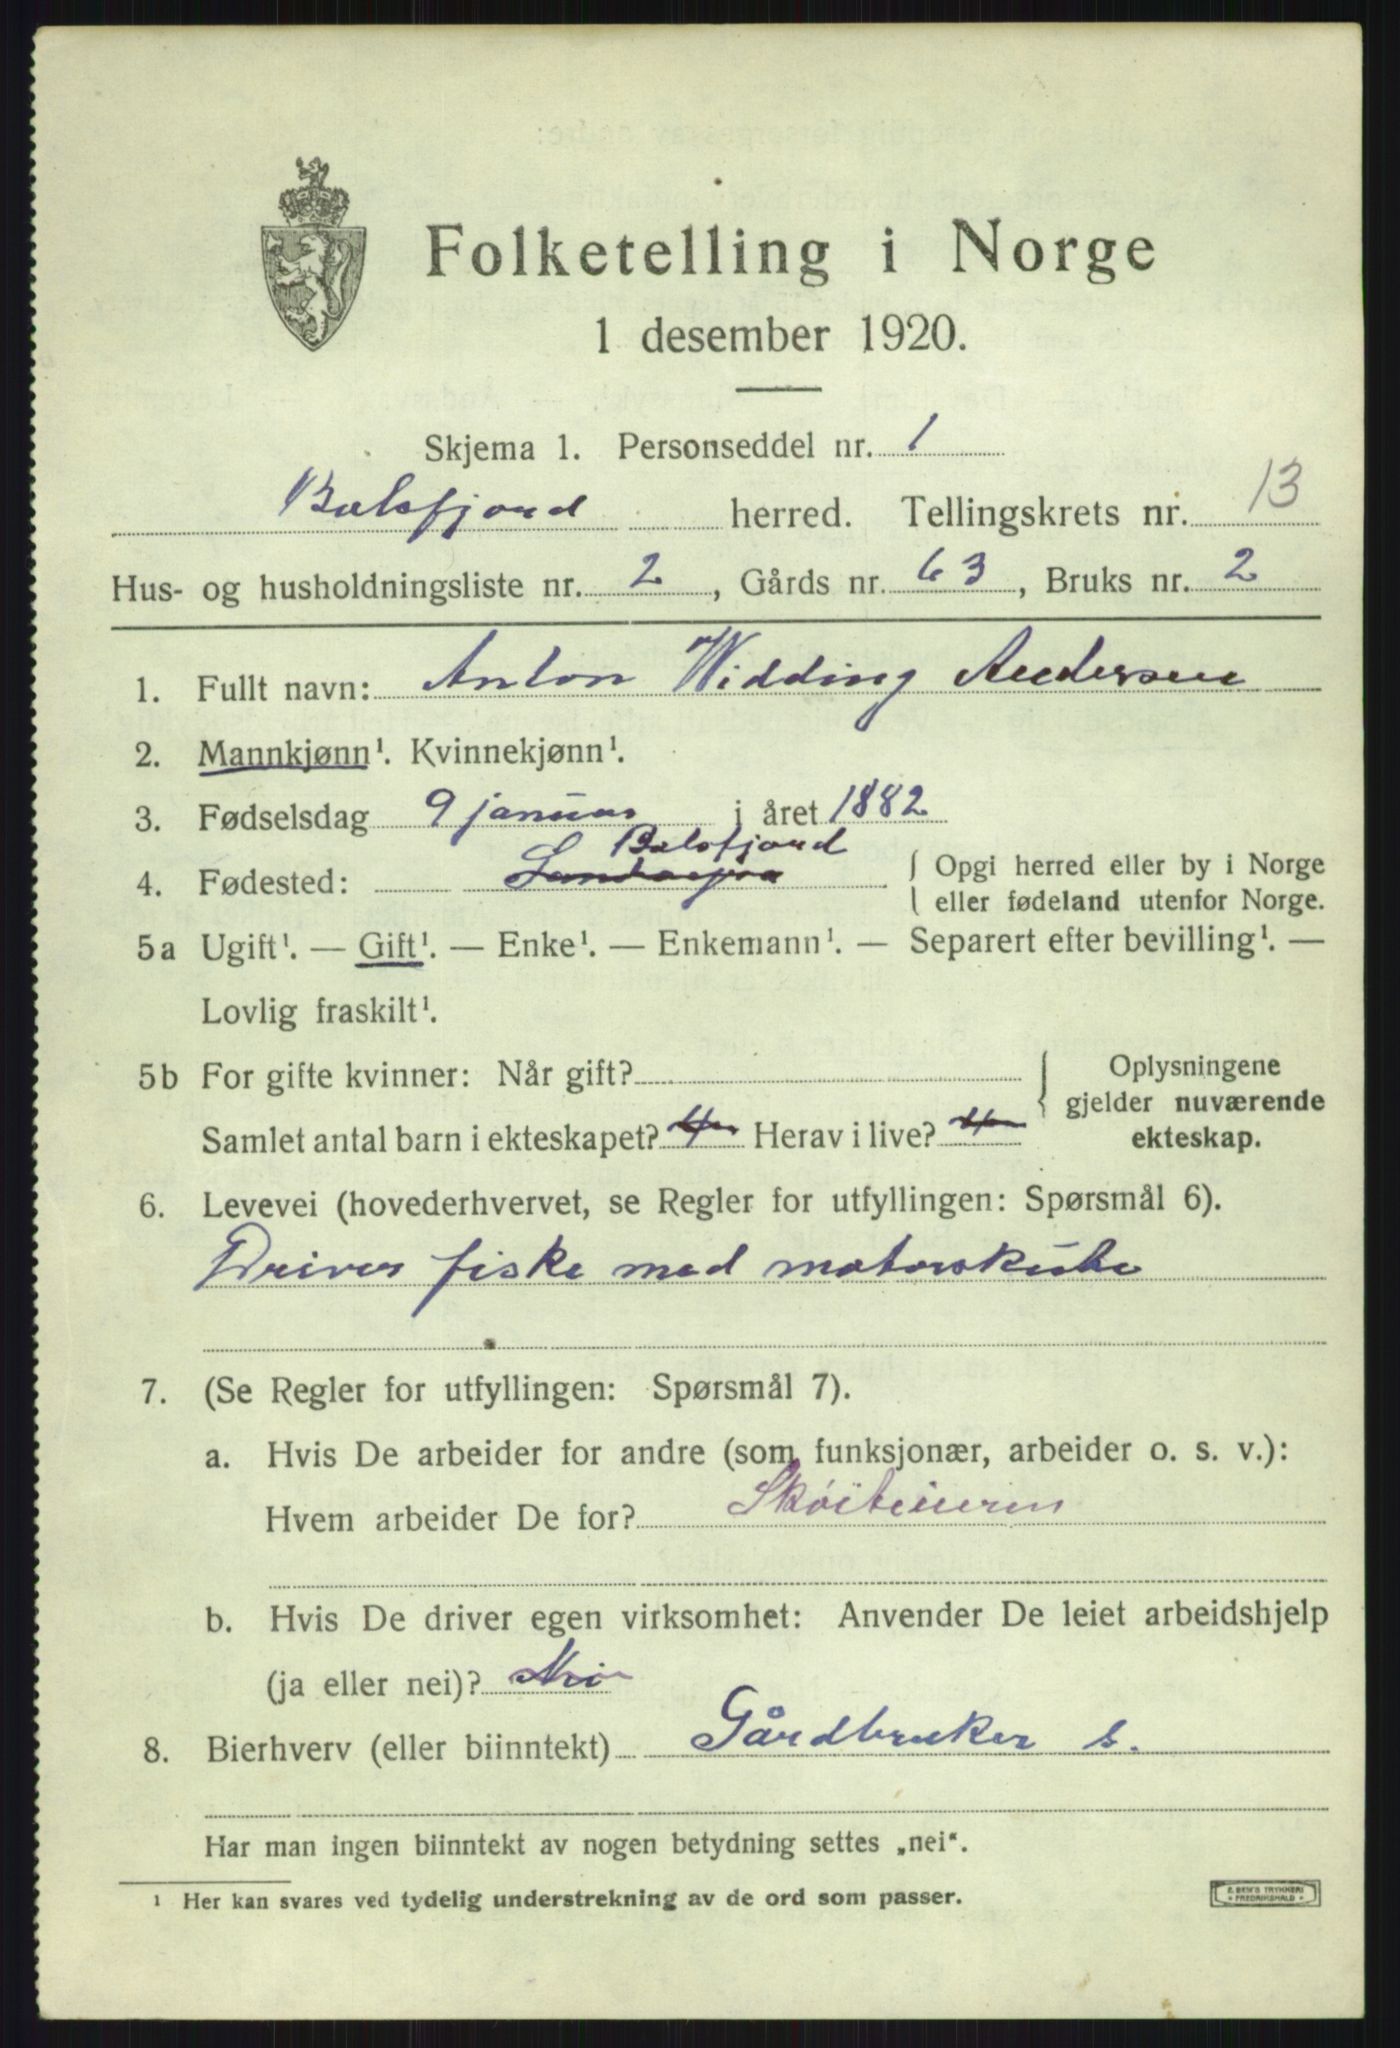 Folketelling i Norge
1 desember 1920.
Skjema 1. Personseddel nr. 1
Balsfjord herred. Tellingskrets nr. 13
Hus- og husholdningsliste nr. 2, Gårds nr. 63, Bruks nr. 2
1. Fullt navn: Anton Widding Andersen
2. Mannkjønn¹. Kvinnekjønn¹.
3. Fødselsdag 9 januar i året 1882
Balsfjord
4. Fødested: { Opgi herred eller by i Norge
eller fødeland utenfor Norge.
5a Ugift¹. — Gift¹. — Enke¹. — Enkemann¹. — Separert efter bevilling¹. —
Lovlig fraskilt¹.
5b For gifte kvinner: Når gift? { Oplysningene
gjelder nuværende
ekteskap.
Samlet antal barn i ekteskapet? Herav i live?
6. Levevei (hovederhvervet, se Regler for utfyllingen: Spørsmål 6).
Driver fiske med motorskøite
7. (Se Regler for utfyllingen: Spørsmål 7).
a. Hvis De arbeider for andre (som funksjonær, arbeider o. s. v.):
Hvem arbeider De for?
b. Hvis De driver egen virksomhet: Anvender De leiet arbeidshjelp
(ja eller nei)? Nei
8. Bierhverv (eller biinntekt) Gårdbruker s.
Har man ingen biinntekt av nogen betydning settes „nei“.
¹ Her kan svares ved tydelig understrekning av de ord som passer.
E. SEM'S TRYKKERI
FREDRIKSHALD